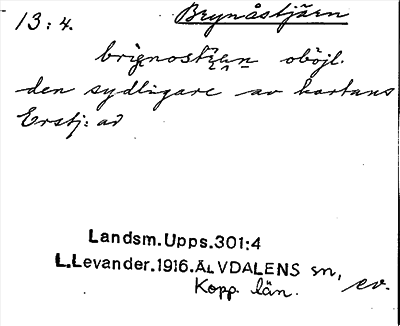 13:4. Brynåstjärn
brignostjan oböjl.
den sydligare av kartans
Erstj:ar
Landsm.Upps.301:4
L.Levander.1916.ÄLVDALENS sn,
Kopp. län. ev.